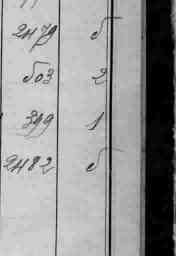 2479 5
503 2
399 1
2482 5